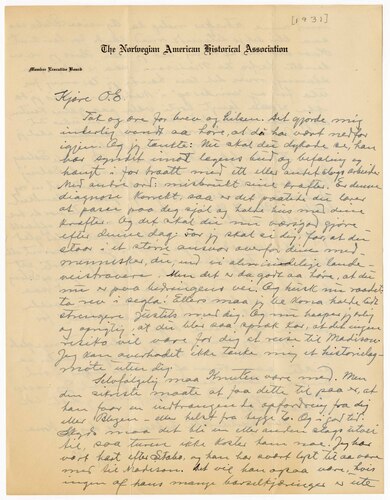 [1931]
The Norwegian American Historical Association
Member Executive Board
Kjære O.E.
Tak og ære for brev og hilsen. Det gjorde mig
inderlig vondt aa høre, at du har vært nedfor
igjen. Og jeg tænkte: Nu skal du dyhate se, han
har syndet imot lægens bud og befaling og
hangt i for traatt med ett eller andet slags arbeide
Med andre ord: misbrukt sine kræfter. Er denne
diagnose korrekt, saa er det paatide du lærer
at passe paa din sjæl og holde hus med dine
kræfter. Og det skal du min værsgod gjøre
efter denne dag: For jeg skal si dig for, at du
staar i et større ansvar overfor dine med
mennesker du, end vi almindelige lande-
veistravere. Men det er da godt aa høre, at du
nu er paa bedringens vei. Og husk nu raadet:
ta ned i segla. Ellers maa jeg ha Lona holde litt
strengere justits med dig. Og nu haaper jeg
og oprigtig, at du blir saa sprek kar, at det ingen
resiko vil være for dig at reise til Madison.
Jeg kan overhodet ikke tænke mig et historielag-
møte uten dig.
Selvfølgelig maa Knuten være med. Men
den sikreste maate at faa dette til paa er, at
han faar en indtrængende opfordring fra dig
eller Blegen – aller helst fra begge to. Og gad
saa det bli en eller anden slags utvei
til, saa turen ikke koster ham noe. Jeg har
vært hast efter Stake, og han har svært lyst til aa være
med til Madison. Det vil han ogsaa være, hvis
ingen af hans mange barselkjærringer er ute